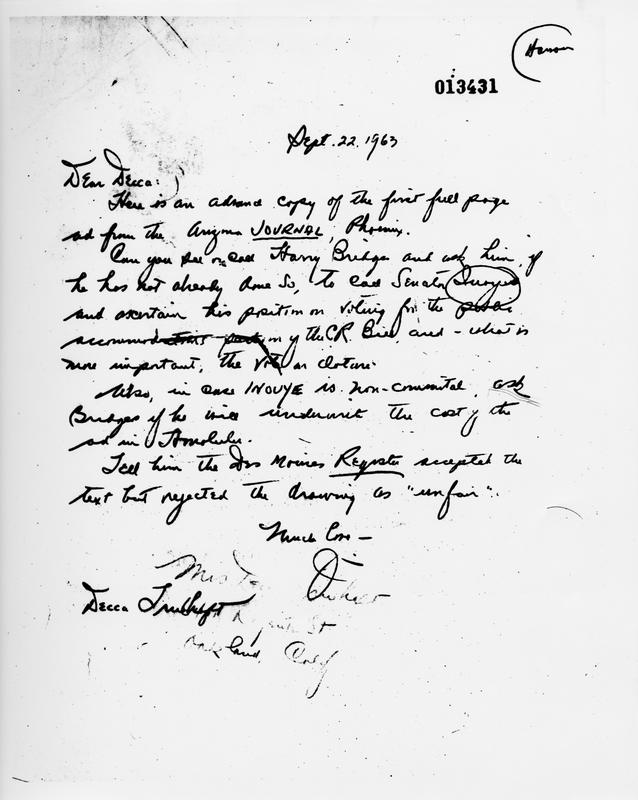 Hanson
013431
Sept. 22, 1963
Dear Decca:
Here is an advance copy of the first full page
ad from the Arizona JOURNAL, Phoenix.
Can you see or call Harry Bridges and ask him, if
he has not already done so, to call Senator Inouye
and ascertain his position on voting for the public
accommodations portion of the C.R. Bill, and - what is
more important, the vote on cloture.
Also, in case INOUYE is non-commital, ask
Bridges if he will underwrite the cost of the
ad in Honolulu.
Tell him the Des Moines Register accepted the
text but rejected the drawing as "unfair".
Much love -
Decca Treuhaft
St
Oakland, Calif